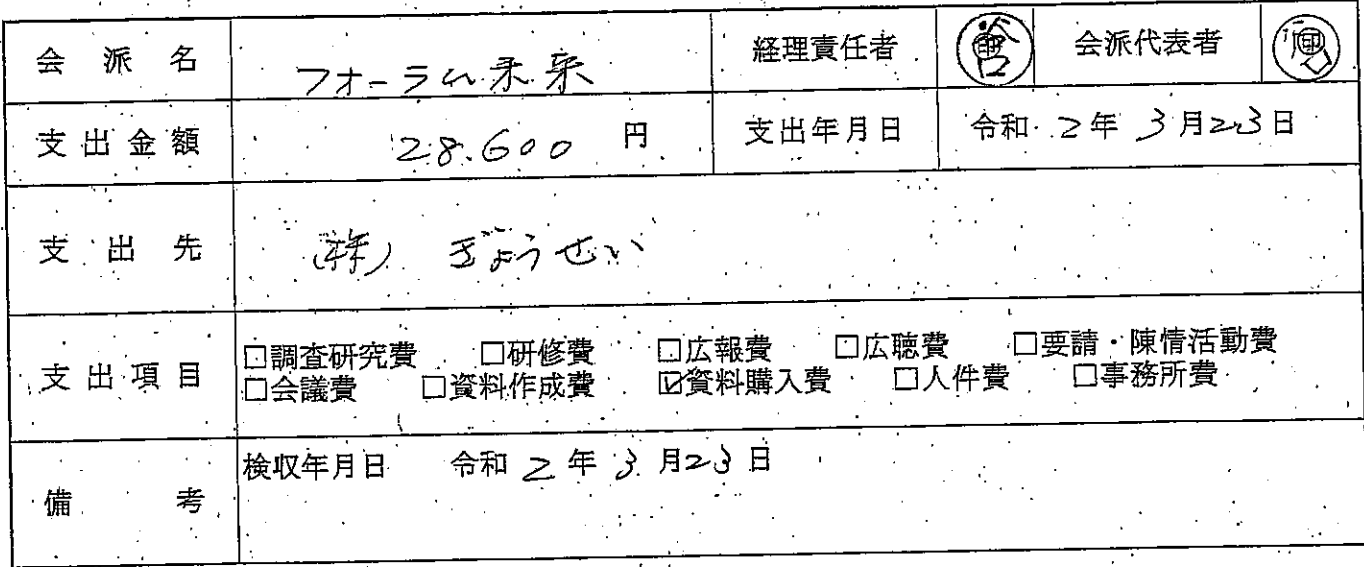 会派名 フォーラム未来 経理責任者 会派代表者
支出金額 28.600 円 支出年月日 令和 2年 3月23日
支出先 (株) ぎょうせい
支出項目 □調査研究費 □研修費 □広報費 □広聴費 □要請・陳情活動費
□会議費 □資料作成費 ☑資料購入費 □人件費 □事務所費
備考 検収年月日 令和 2 年 3 月23日